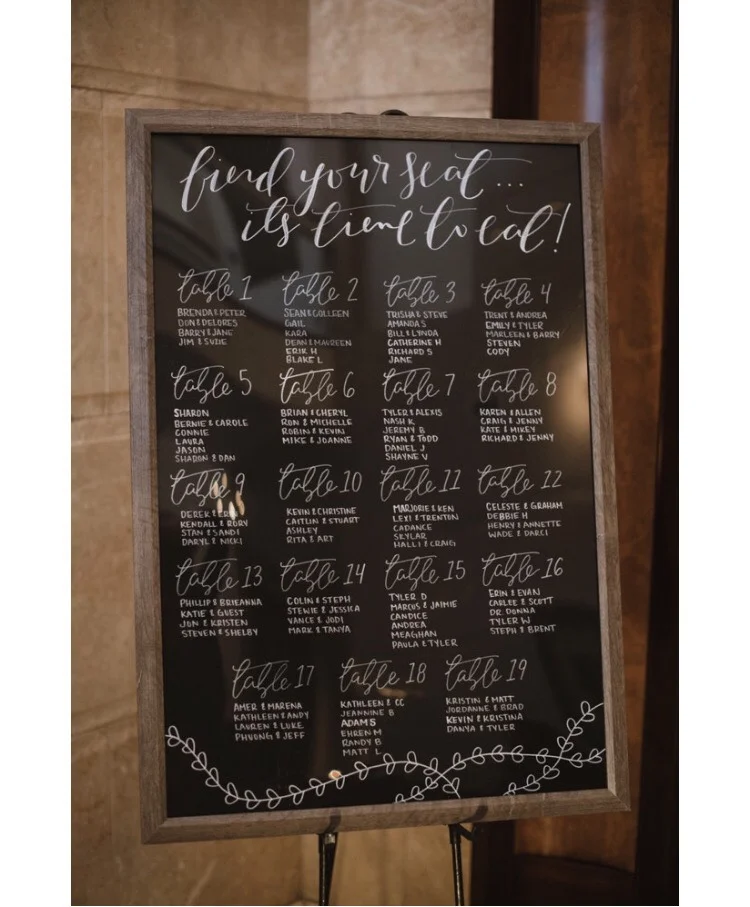 find your seat...
its time to eat!
table 1
BRENDA & PETER
DON & DELORES
BARRY & JANE
JIM & SUZIE
table 2
SEAN & COLLEEN
GAIL
KARA
DEAN & MAUREEN
ERIK H
BLAKE L
table 3
TRISHA & STEVE
AMANDA S
BILL & LYNDA
CATHERINE H
RICHARD S
JANE
table 4
TRENT & ANDREA
EMILY & TYLER
MARLEEN & BARRY
STEVEN
CODY
table 5
SHARON
BERNIE & CAROLE
CONNIE
LAURA
JASON
SHARON & DAN
table 6
BRIAN & CHERYL
RON & MICHELLE
ROBIN & KEVIN
MIKE & JOANNE
table 7
TYLER & ALEXIS
NASH K
JEREMY B
RYAN & TODD
DANIEL J
SHAYNE V
table 8
KAREN & ALLEN
CRAIG & JENNY
KATE & MIKEY
RICHARD & JENNY
table 9
DEREK &
KENDALL & RORY
STAN & SANDI
DARYL & NICKI
table 10
KEVIN & CHRISTINE
CAITLIN & STUART
ASHLEY
RITA & ART
table 11
MARJORIE & KEN
LEXI & TRENTON
CADANCE
SKYLAR
HALLI & CRAIG
table 12
CELESTE & GRAHAM
DEBBIE H
HENRY & ANNETTE
WADE & DARCI
table 13
PHILLIP & BRIEANNA
KATIE & GUEST
JON & KRISTEN
STEVEN & SHELBY
table 14
COLIN & STEPH
STEWIE & JESSICA
VANCE & JODI
MARK & TANYA
table 15
TYLER D
MARCUS & JAIMIE
CANDICE
ANDREA
MEAGHAN
PAULA & TYLER
table 16
ERIN & EVAN
CARLEE & SCOTT
DR. DONNA
TYLER W
STEPH & BRENT
table 17
AMER & MARENA
KATHLEEN & ANDY
LAUREN & LUKE
PHUONG & JEFF
table 18
KATHLEEN & CC
JEANNINE B
ADAM S
EHREN M
RANDY B
MATT L
table 19
KRISTIN & MATT
JORDANNE & BRAD
KEVIN & KRISTINA
DANYA & TYLER